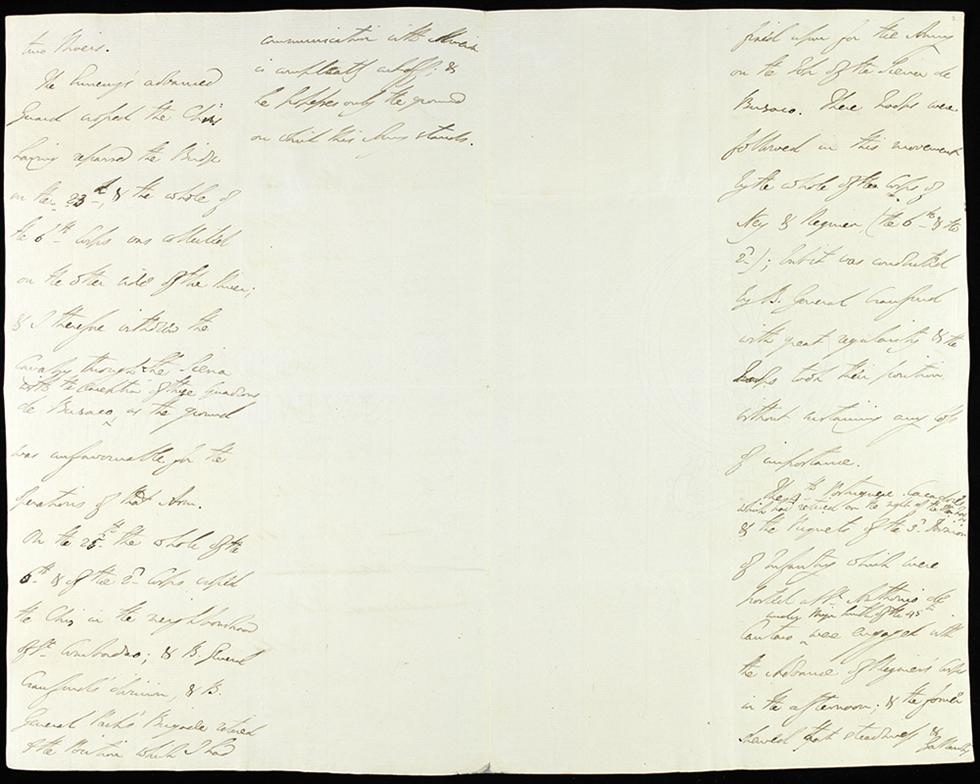 two Rivers.
The Enemy's advanced
Guard crossed the Criz
having repaired the Bridge
on the 23d, & the whole of
the 6th Corps was collected
on the other side of the River;
& I therefore withdrew the
Cavalry through the Sierra
with the exception of three Squadrons
de Busaco, as the ground
was unfavourable for the
operations of that Arm.
On the 25th the whole of the
6th & of the 2d Corps crossed
the Criz in the neighbourhood
of St. Combadao; & B. General
Craufurd's division, & B.
General Pack's Brigade retired
to the Position which I had
communication with Almeida
is completely cut off; &
he possesses only the ground
on which his Army stands.
fixed upon for the Army
on the top of the Sierra de
Busaco. These troops were
followed in this movement
by the whole of the Corps of
Ney & Regnier, (the 6th & the
2d); but it was conducted
by B. General Craufurd
with great regularity & the
troops took their position
without sustaining any loss
of importance.
The 4th Portuguese Cacadores
which had retired on the right of the other troops
& the Piquets of the 3d Division
of Infantry which were
posted at St. Anthonio de
under Major Smith of the 45th
Cantaro were engaged with
the advance of Regnier's Corps
in the afternoon; & the former
shewed that steadiness & gallantry